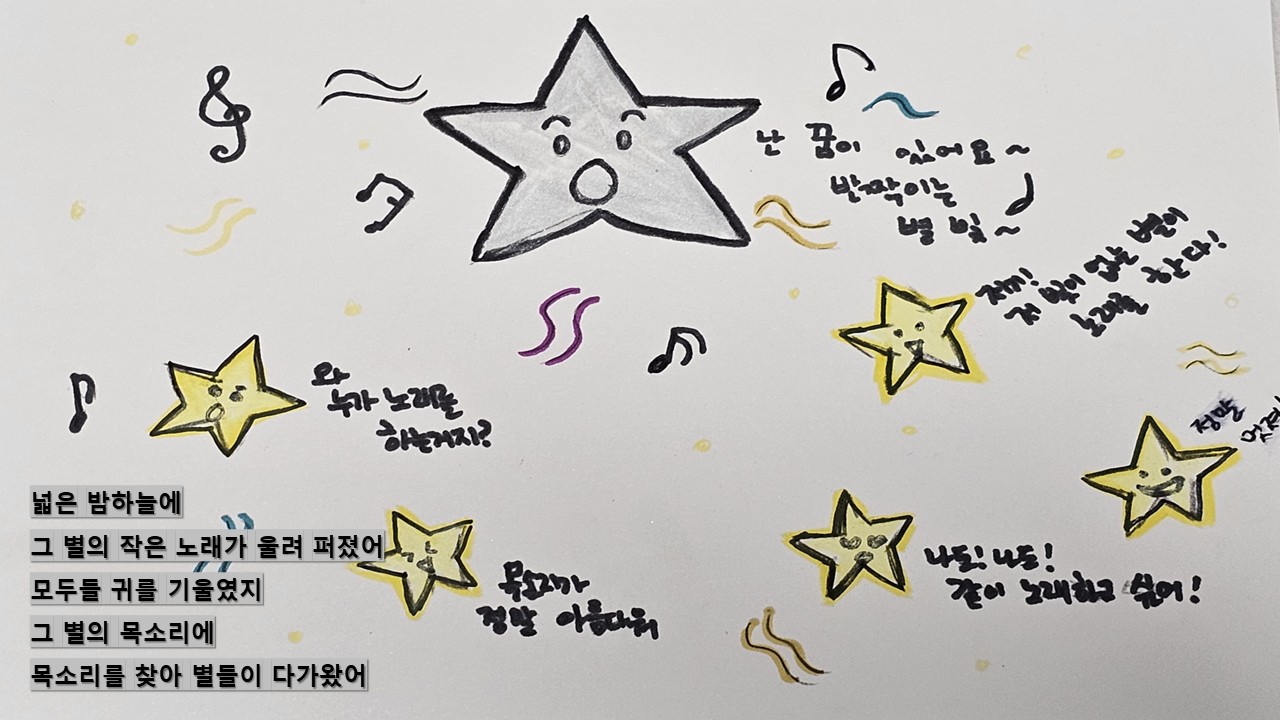 난 꿈이 있어요~
반짝이는
별 빛~
저기!
저 빛이 없는 별이
노래를 한다!
와
누가 노래를
하는거지?
정말
나도! 나도!
같이 노래하고 싶어!
목소리가
정말 아름다워
넓은 밤하늘에
그 별의 작은 노래가 울려 퍼졌어
모두들 귀를 기울였지
그 별의 목소리에
목소리를 찾아 별들이 다가왔어